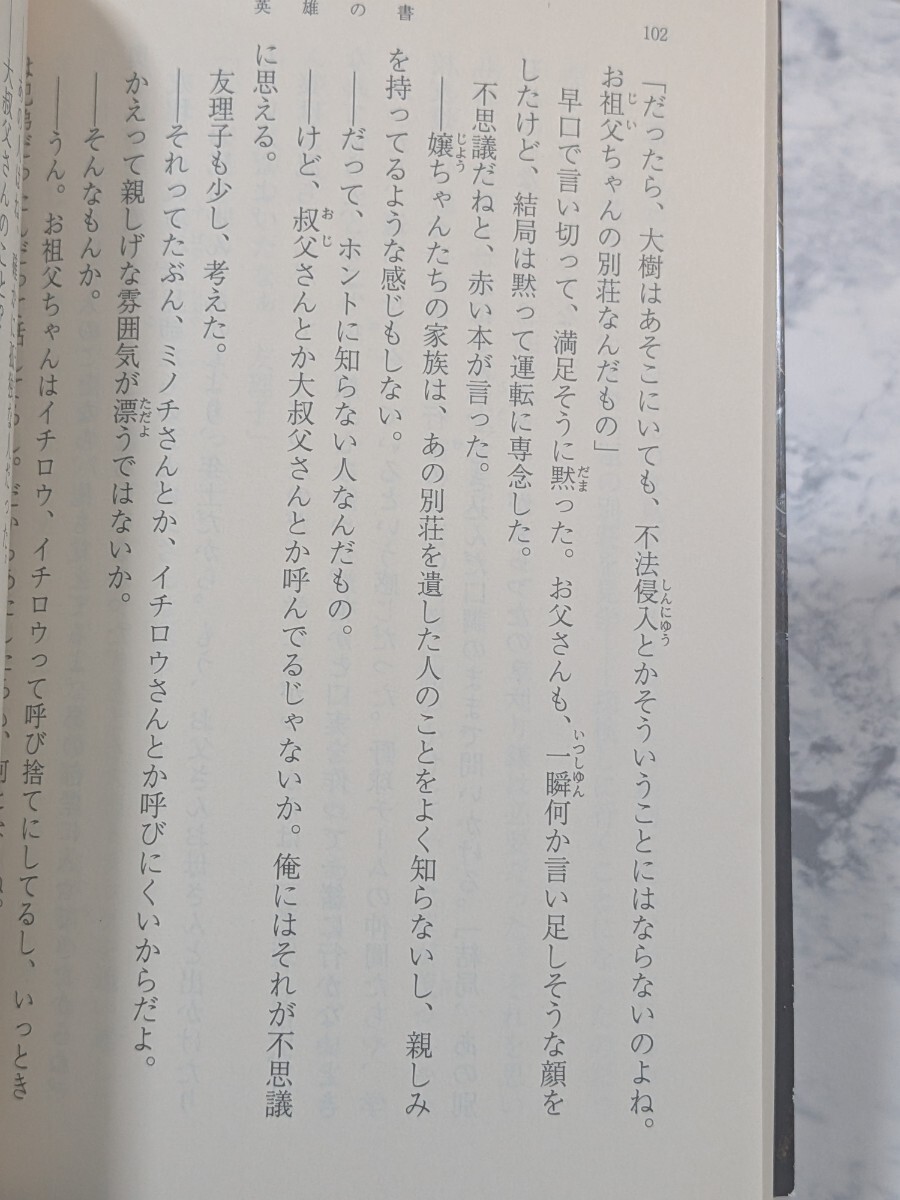 英雄の書
102
「だったら、大樹はあそこにいても、不法侵入とかそういうことにはならないのよね。
お祖父ちゃんの別荘なんだもの」
早口で言い切って、満足そうに黙った。お父さんも、一瞬何か言い足しそうな顔を
したけど、結局は黙って運転に専念した。
不思議だねと、赤い本が言った。
――嬢ちゃんたちの家族は、あの別荘を遺した人のことをよく知らないし、親しみ
を持ってるような感じもしない。
――だって、ホントに知らない人なんだもの。
――けど、叔父さんとか大叔父さんとか呼んでるじゃないか。俺にはそれが不思議
に思える。
友理子も少し、考えた。
――それってたぶん、ミノチさんとか、イチロウさんとか呼びにくいからだよ。
かえって親しげな雰囲気が漂うではないか。
――そんなもんか。
――うん。お祖父ちゃんはイチロウ、イチロウって呼び捨てにしてるし、いっとき